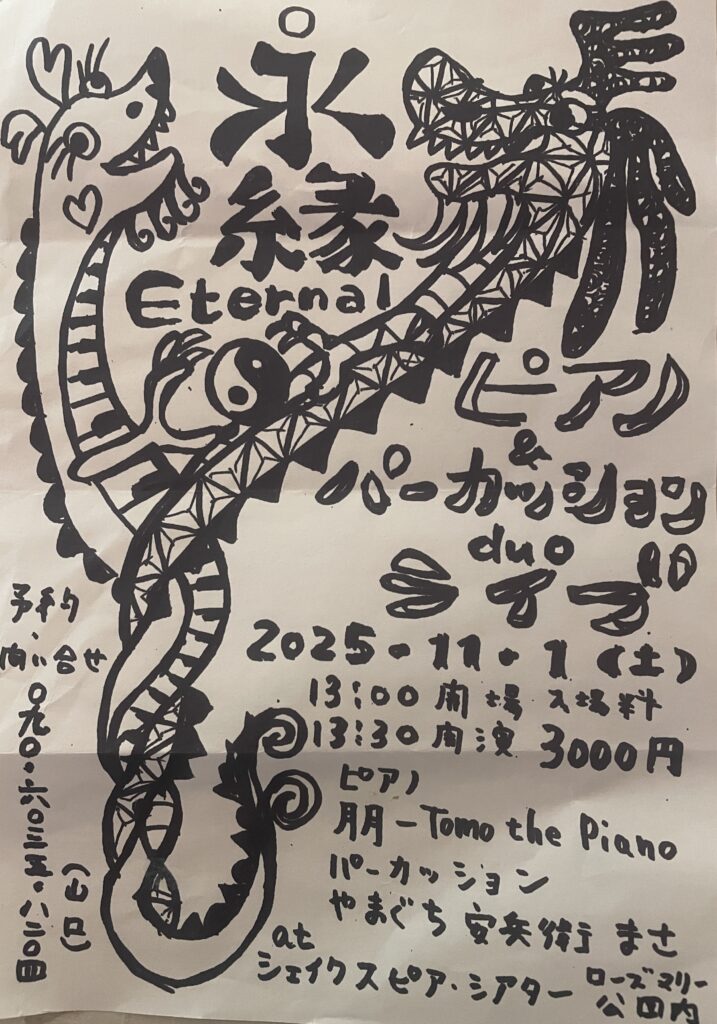 永
縁
Eternal
ピアノ
&
パーカッション
duo
ライブ
2025・11・1(土)
13:00 開場 入場料
13:30 開演 3000円
ピアノ
朋-Tomo the Piano
パーカッション
やまぐち 安兵衛 まさ
at
シェイクスピア・シアター
ローズマリー
公園内
予約、
問い合せ
〇九〇・六〇三五・八二〇四
(山口)